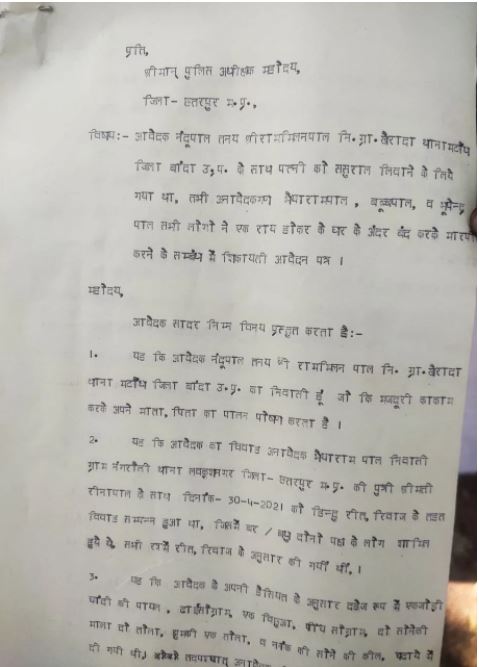 प्रति,
श्रीमान् पुलिस अधीक्षक महोदय,
जिला- छतरपुर म.प्र.,
विषय:- आवेदक नंदूपाल तनय श्रीराममिलनपाल नि.ग्रा.खैरादा थानामटौंध
जिला बांदा उ.प. के साथ पत्नी को ससुराल लिवाने के लिये
गया था, तभी अनावेदकगण भैयारामपाल , बब्बूपाल, व भूपेन्द्र
पाल सभी लोगों ने एक राय होकर के घर के अंदर बंद करके मारपी
करने के सम्बंध में शिकायती आवेदन पत्र ।
महोदय,
आवेदक सादर निम्न विनय प्रस्तुत करता है:-
1. यह कि आवेदक नंदूपाल तनय श्री राममिलन पाल नि. ग्रा.खैरादा
थाना मटौंध जिला बांदा उ.प्र. का निवासी हूँ जो कि मजदूरी काकाम
करके अपने माता, पिता का पालन पोषण करता है ।
2. यह कि आवेदक का विवाह अनावेदक भैयाराम पाल निवासी
ग्राम थाना लवकुशनगर जिला- छतरपुर म.प्र. की पुत्री श्रीमती
रीनापाल के साथ दिनांक- 30-4-2021 को हिन्दू रीत, रिवाज के तहत
विवाह सम्पन्न हुआ था, जिसमें वर / बधु दोनो पक्ष के लोग शामिल
हुये थे, सभी रश्में रीत, रिवाज के अनुसार की गयीं थीं, ।
3. यह कि आवेदक के अपनी हैसियत के अनुसार दहेज रूप में एकजोड़ी
चांदी की पायल , ढाईसौग्राम, एक बिछुआ, पांच सौग्राम, दो सोनेकी
माला दो तोला, झुमकी एक तोला, व नाक की सोने की कील, चढ़ाये में
दी गयी थी, तत्पश्चात्